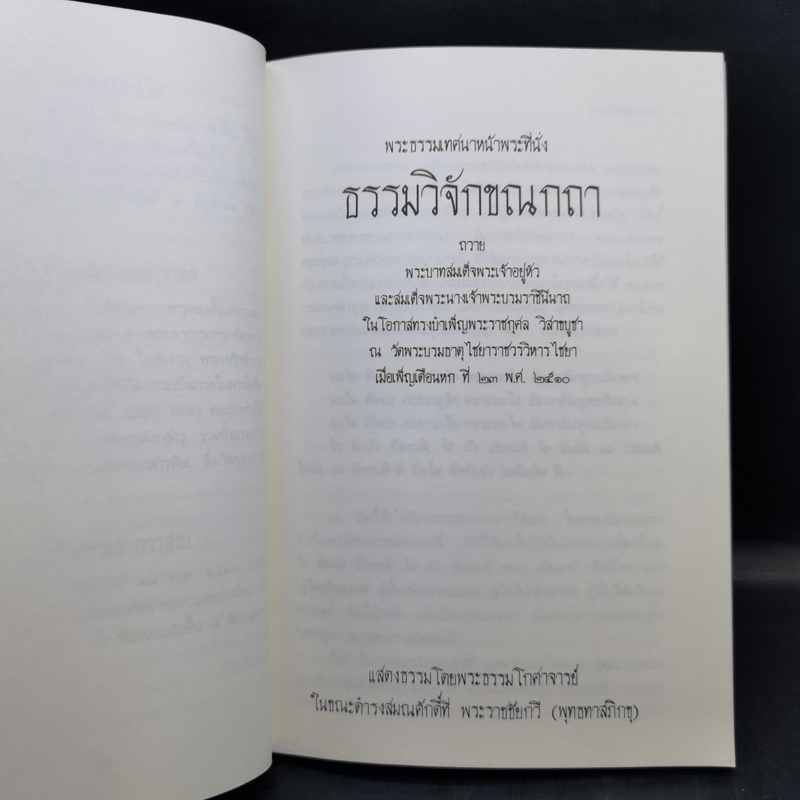 พระธรรมเทศนาหน้าพระที่นั่ง
ธรรมวิจักขณกถา
ถวาย
พระบาทสมเด็จพระเจ้าอยู่หัว
และสมเด็จพระนางเจ้าพระบรมราชินีนาถ
ในโอกาสทรงบำเพ็ญพระราชกุศล วิสาขบูชา
ณ วัดพระบรมธาตุไชยาราชวรวิหาร ไชยา
เมื่อเพ็ญเดือนหก ที่ ๒๓ พ.ศ. ๒๕๑๐
แสดงธรรมโดยพระธรรมโกศาจารย์
ในขณะดำรงสมณศักดิ์ที่ พระราชชัยกวี (พุทธทาสภิกขุ)